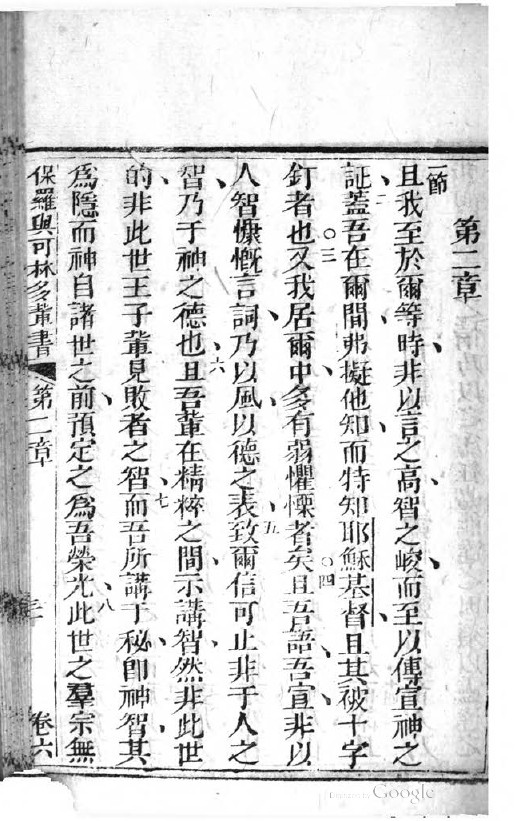 第二章
一節
且我至於爾等時非以言之高智之峻而至以傳宣神之
二
証蓋吾在爾間弗擬他知而特知耶穌基督且其被十字
三
釘者也又我居爾中多有弱懼慄者矣且吾語吾宣非以
四
人智慷慨言詞乃以風以德之表致爾信可止非于人之
五
智乃于神之德也且吾輩在精粹之間示講智然非此世
六
的非此世王子輩見敗者之智而吾所講于秘即神智其
七
為隱而神自諸世之前預定之為吾榮光此世之羣宗無
八
保羅與可林多輩書 第二章 三 卷六
Digitized by Google